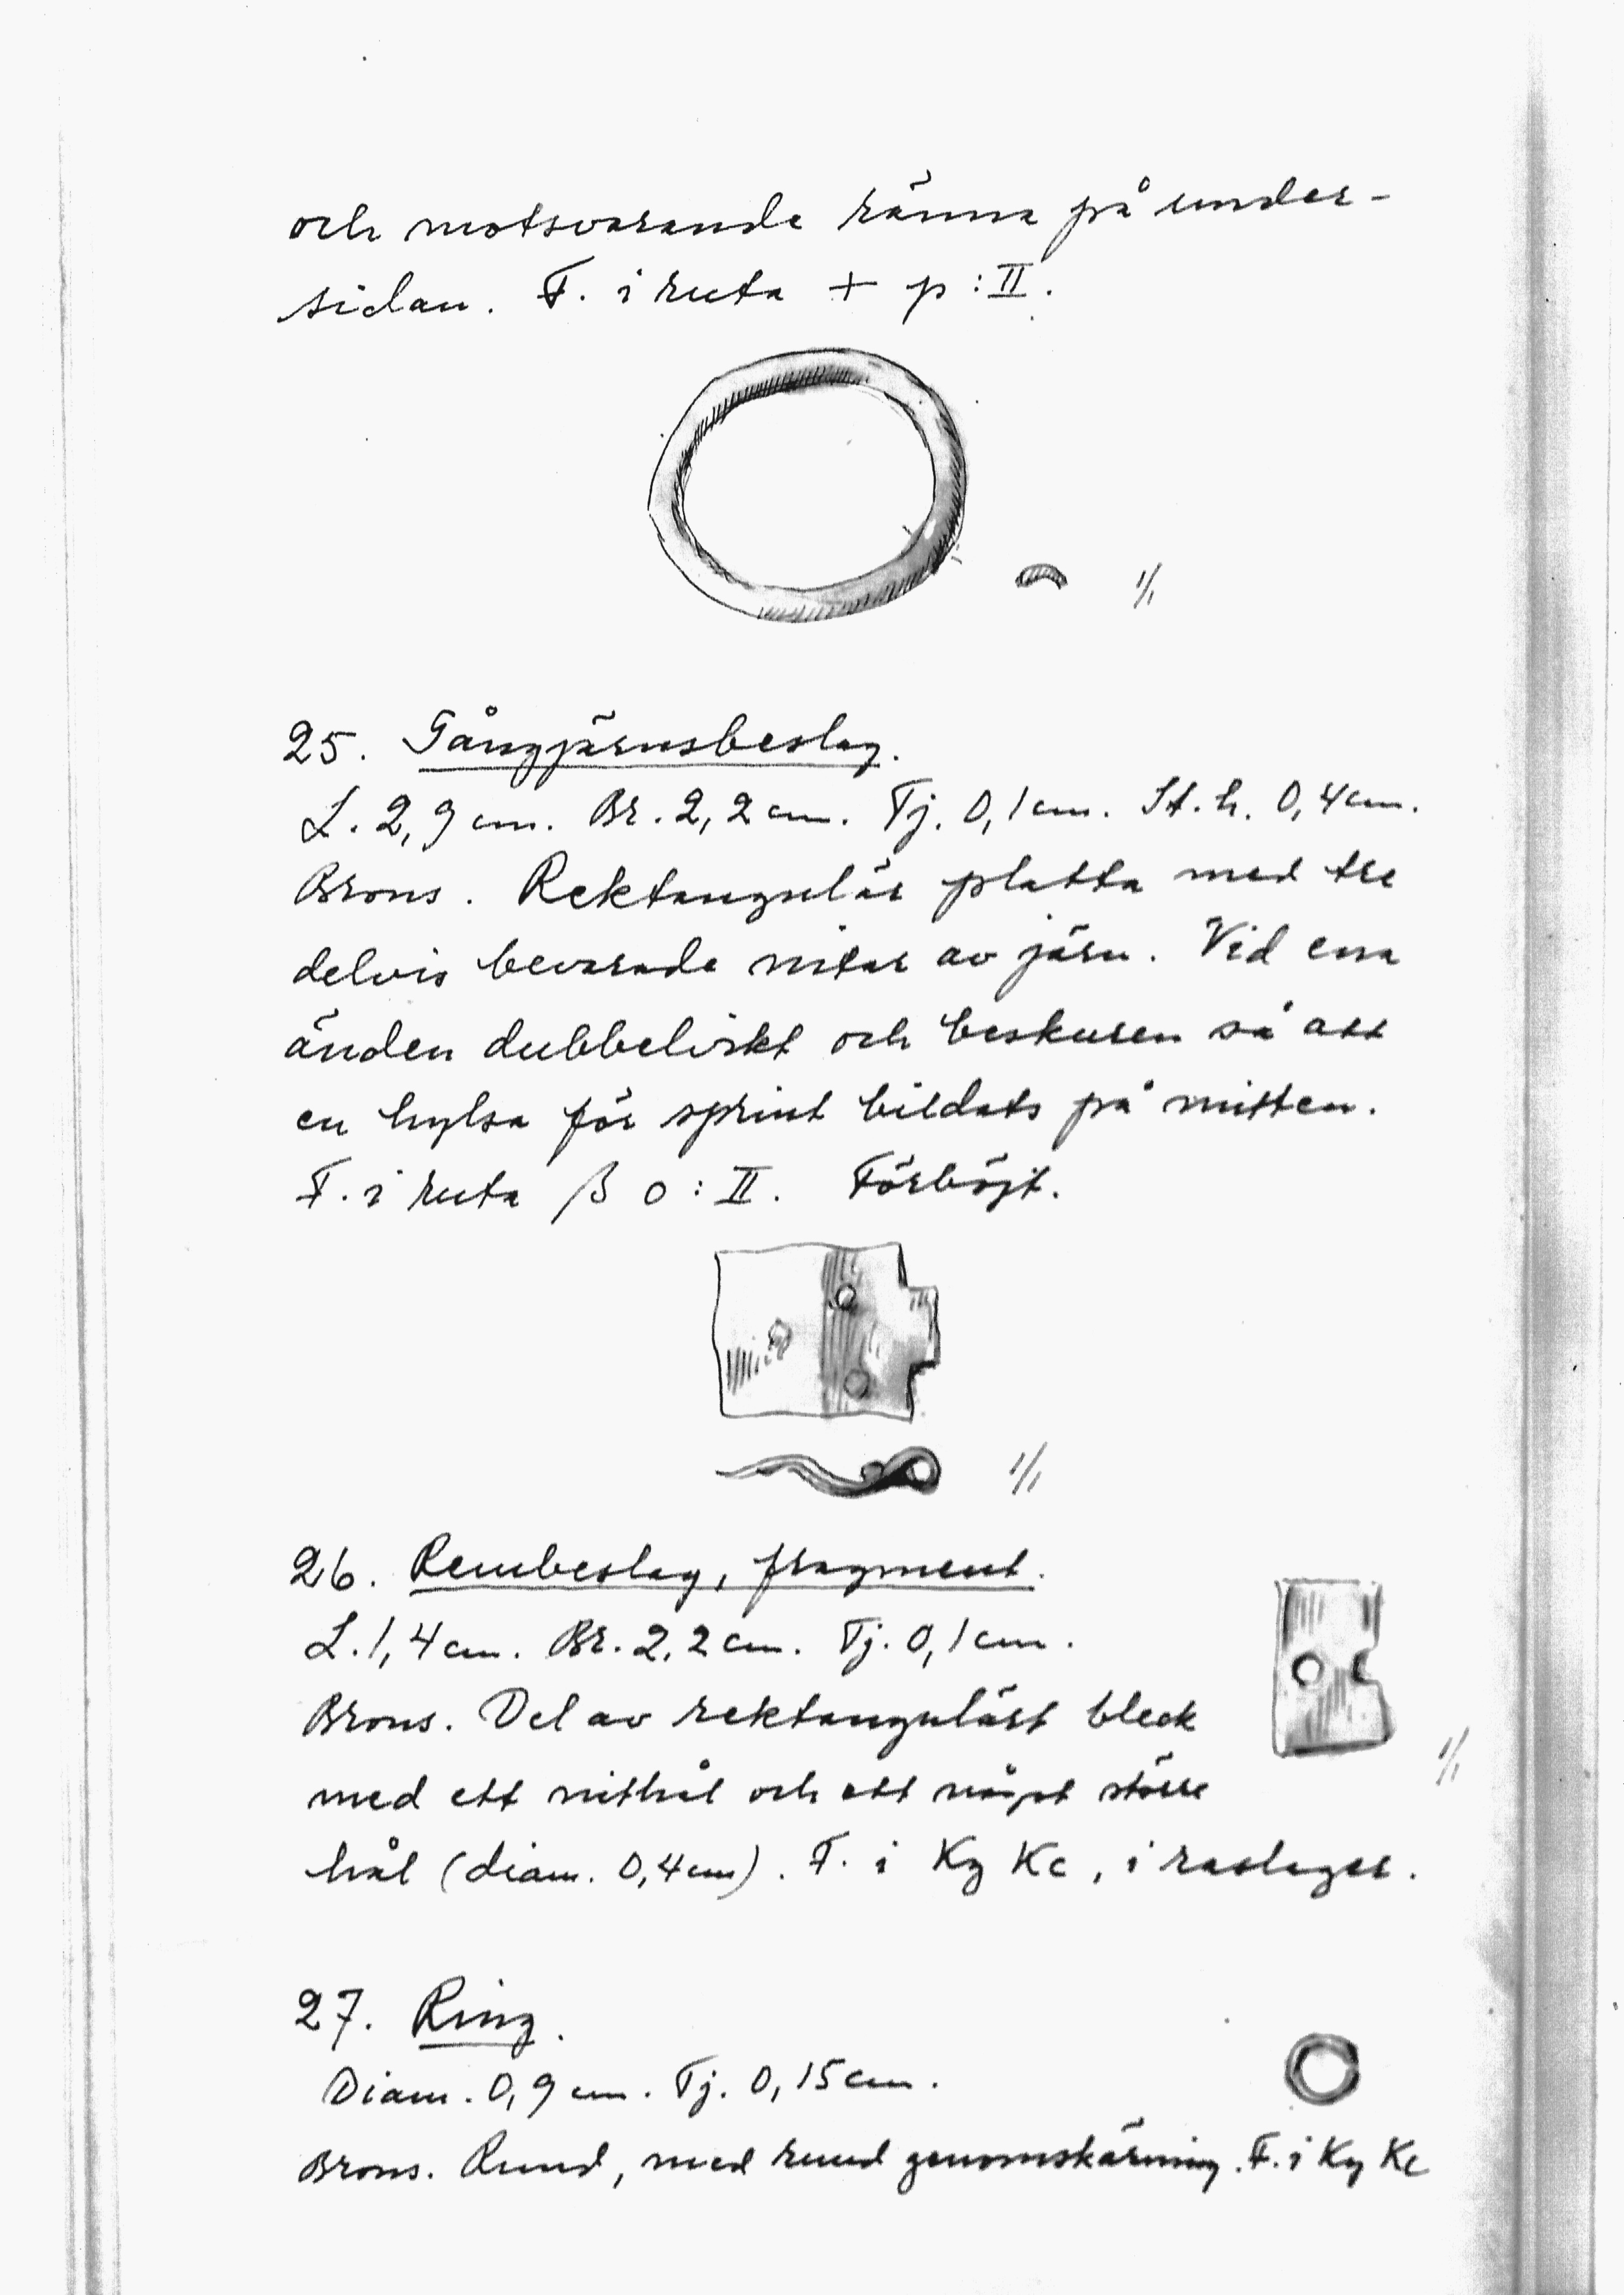 och motsvarande ränna på under-
sidan. F. i ruta + p : II.
1/1
25. Gångjärnsbeslag.
L. 2,9 cm. Br. 2,2 cm. Tj. 0,1 cm. St. h. 0,4 cm.
Brons. Rektangulär platta med tre
delvis bevarade nitar av järn. Vid ena
änden dubbelvikt och beskuren så att
en hylsa för sprint bildats på mitten.
F. i ruta β o : II. Förböjt.
1/1
26. Rembeslag, fragment.
L. 1,4 cm. Br. 2,2 cm. Tj. 0,1 cm.
Brons. Del av rektangulärt bleck
med ett nithål och ett något större
1/1
hål (diam. 0,4 cm). F. i Ky Kc, i raslager.
27. Ring.
Diam. 0,9 cm. Tj. 0,15 cm.
Brons. Rund, med rund genomskärning. F. i Ky Kc